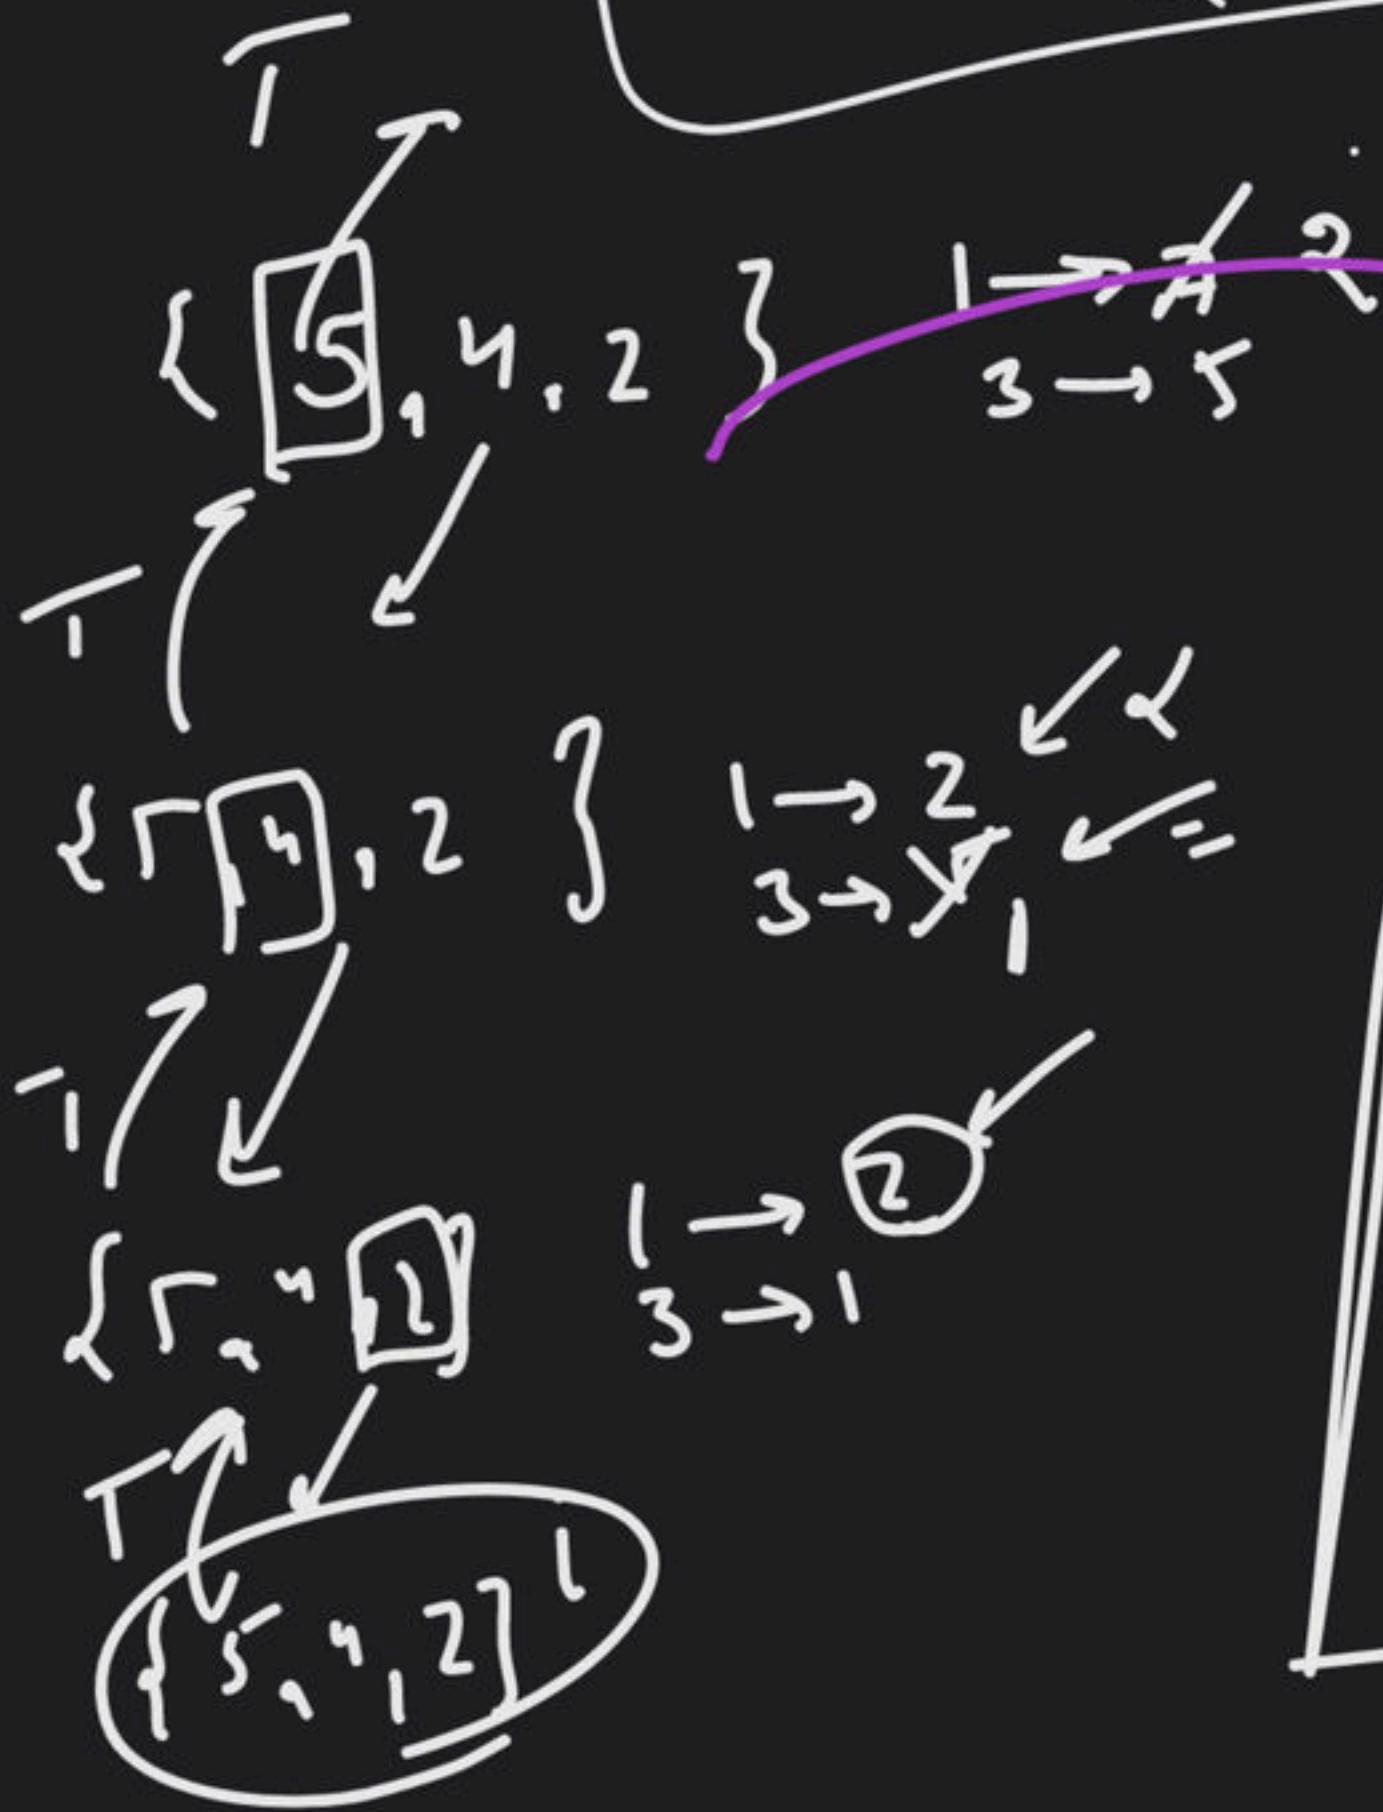 T
{ 5, 4, 2 } 1 → 7 2
3 → 5
T
{ 5, 4, 2 } 1 → 2
3 → 1
T
{ 5, 4 2 } 1 → 2
3 → 1
T
{ 5, 4, 2 }